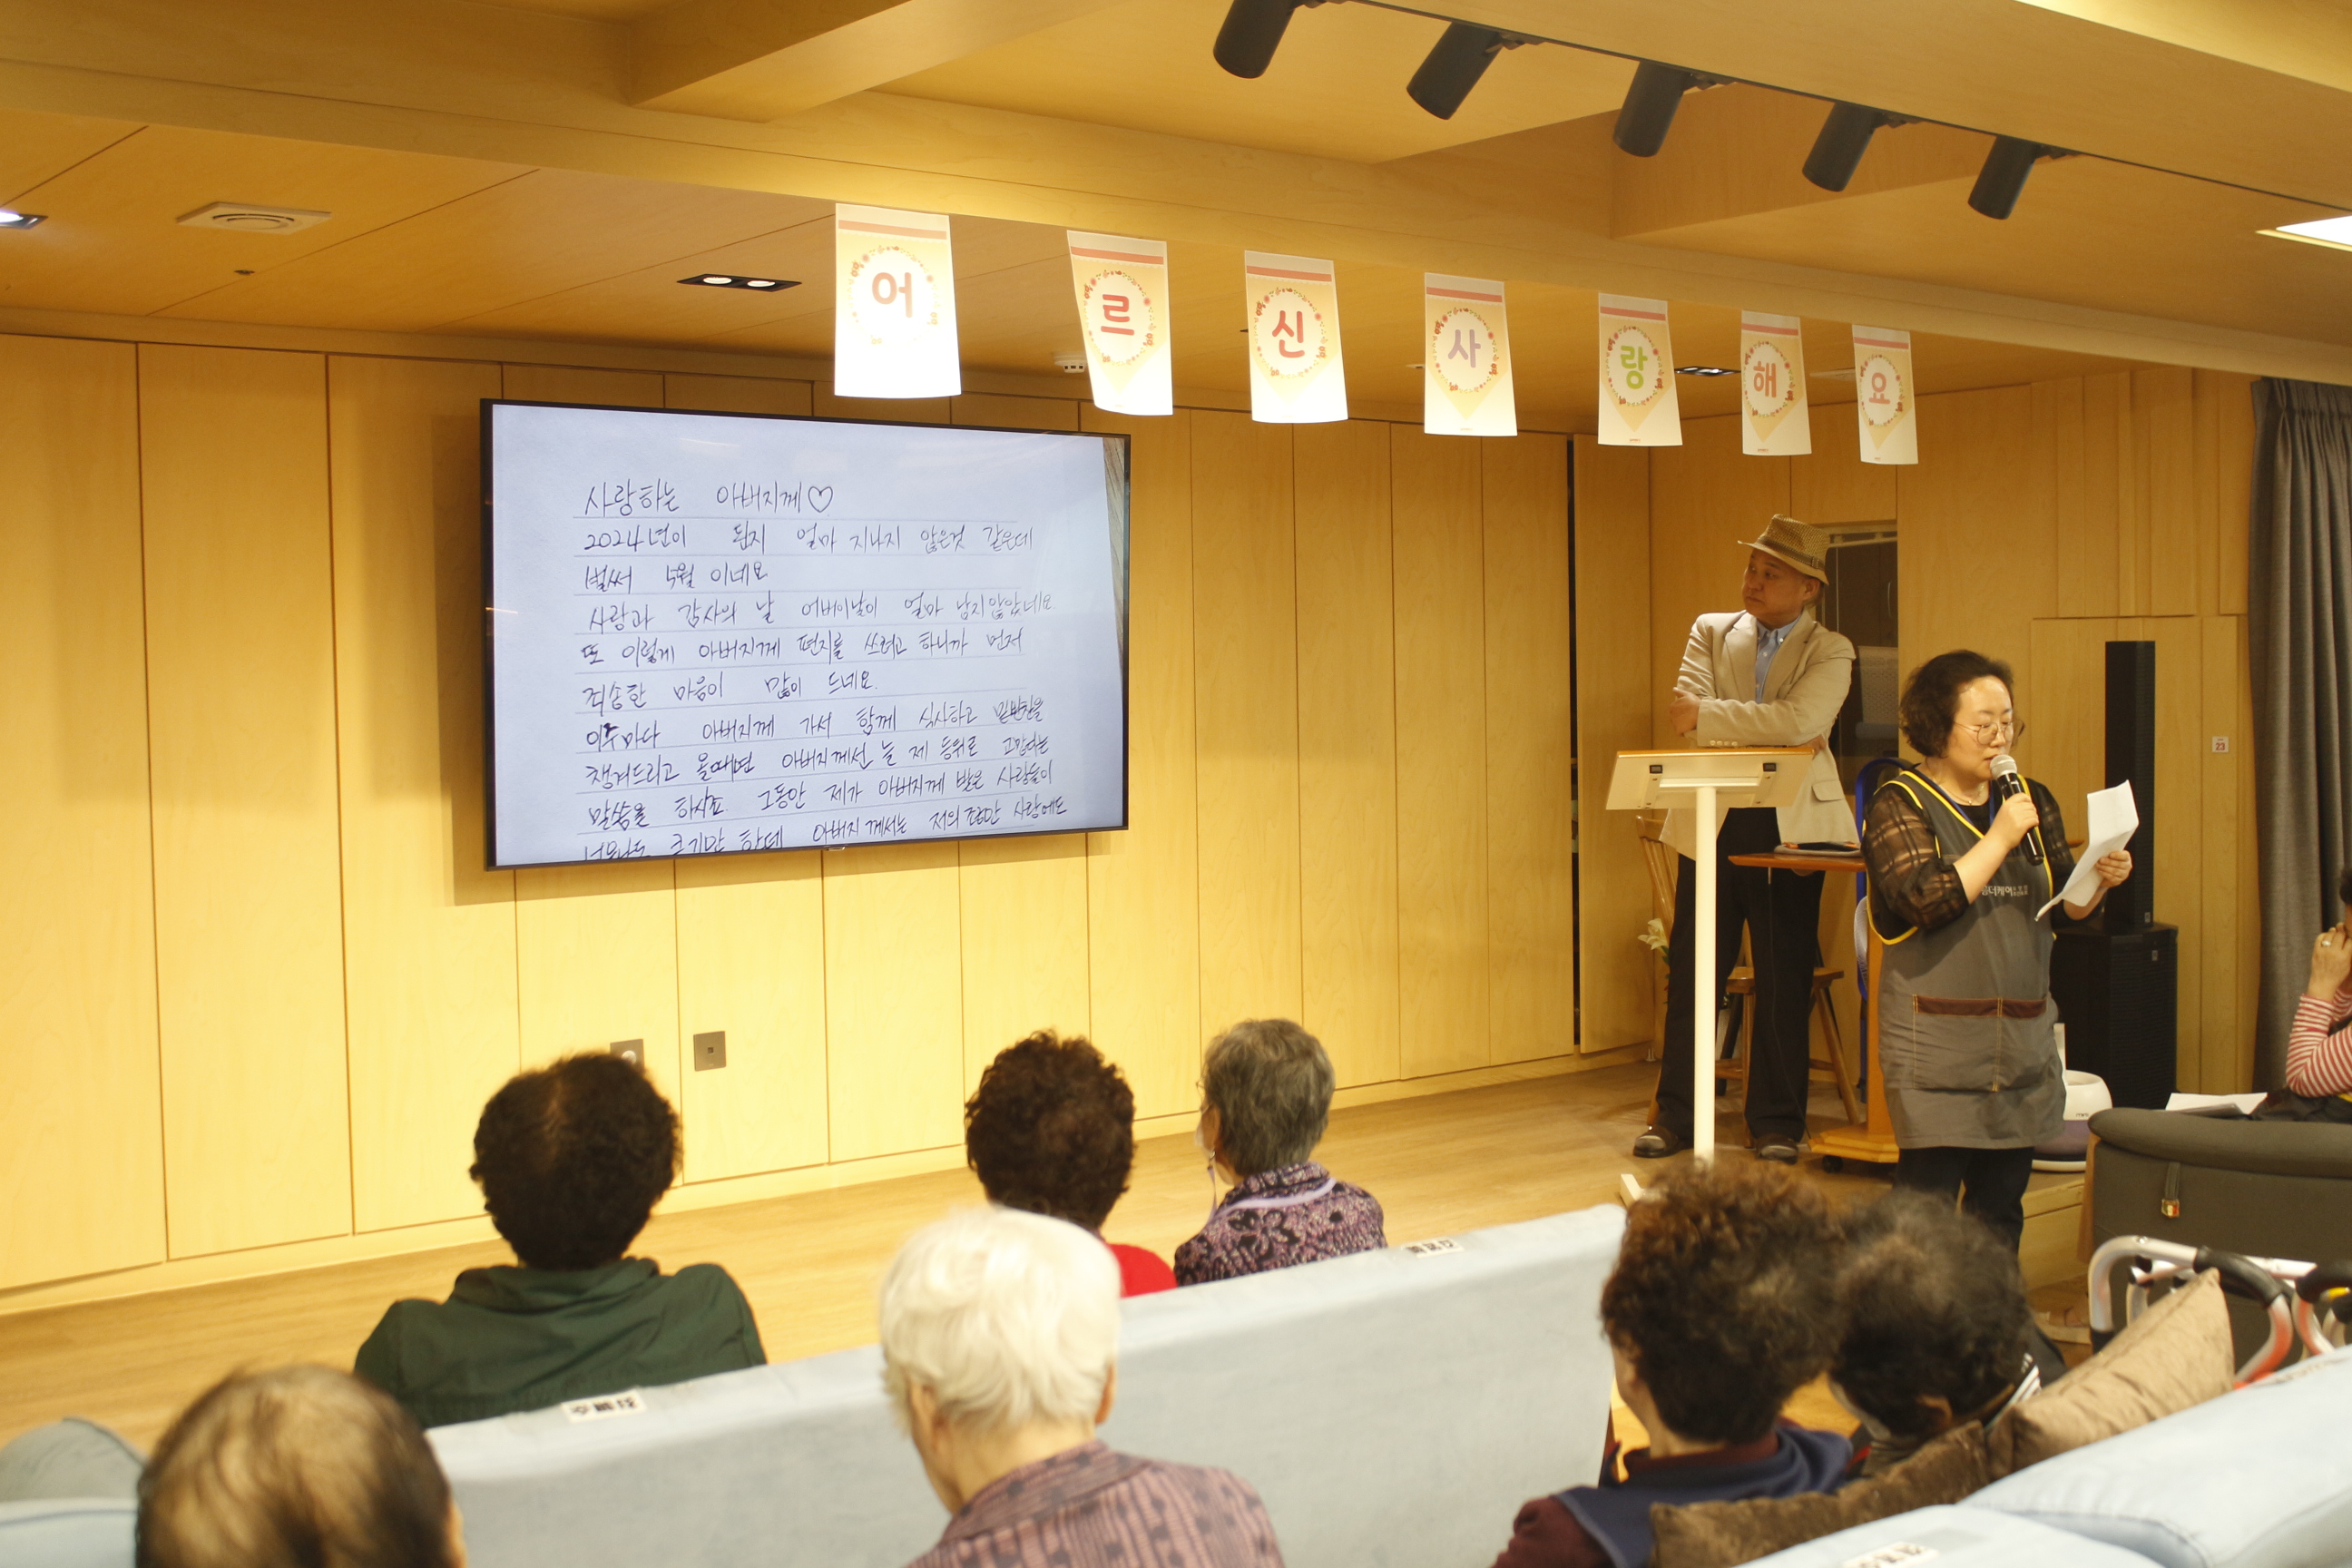 어르신사랑해요
사랑하는 아버지께♡
2024년이 된지 얼마 지나지 않은것 같은데
벌써 5월 이네요
사랑과 감사의 날 어버이날이 얼마 남지않았네요
또 이렇게 아버지께 편지를 쓰려고 하니까 먼저
죄송한 마음이 많이 드네요.
아버지께 가서 함께 식사하고 밑반찬을
챙겨드리고 올때면 아버지께선 늘 제 등위로 고맙다는
말씀을 하시죠. 그동안 제가 아버지께 받은 사랑들이
크기만 한데 아버지께서는 저의 조그만 사랑에도
더케어
23